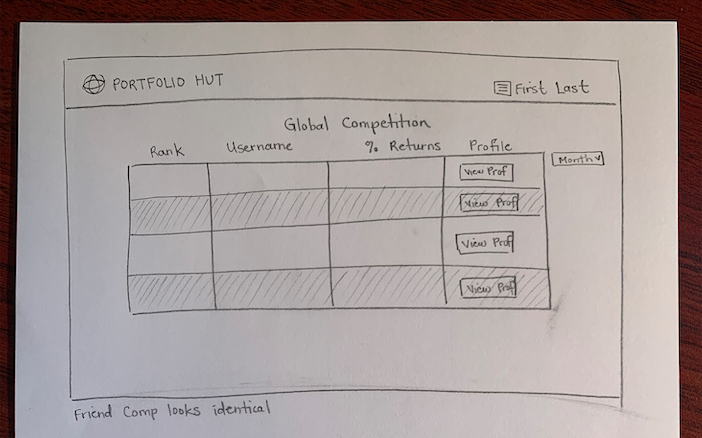 PORTFOLIO HUT
First Last
Global Competition
Rank Username % Returns Profile
Month
View Prof
View Prof
View Prof
View Prof
Friend Comp looks identical